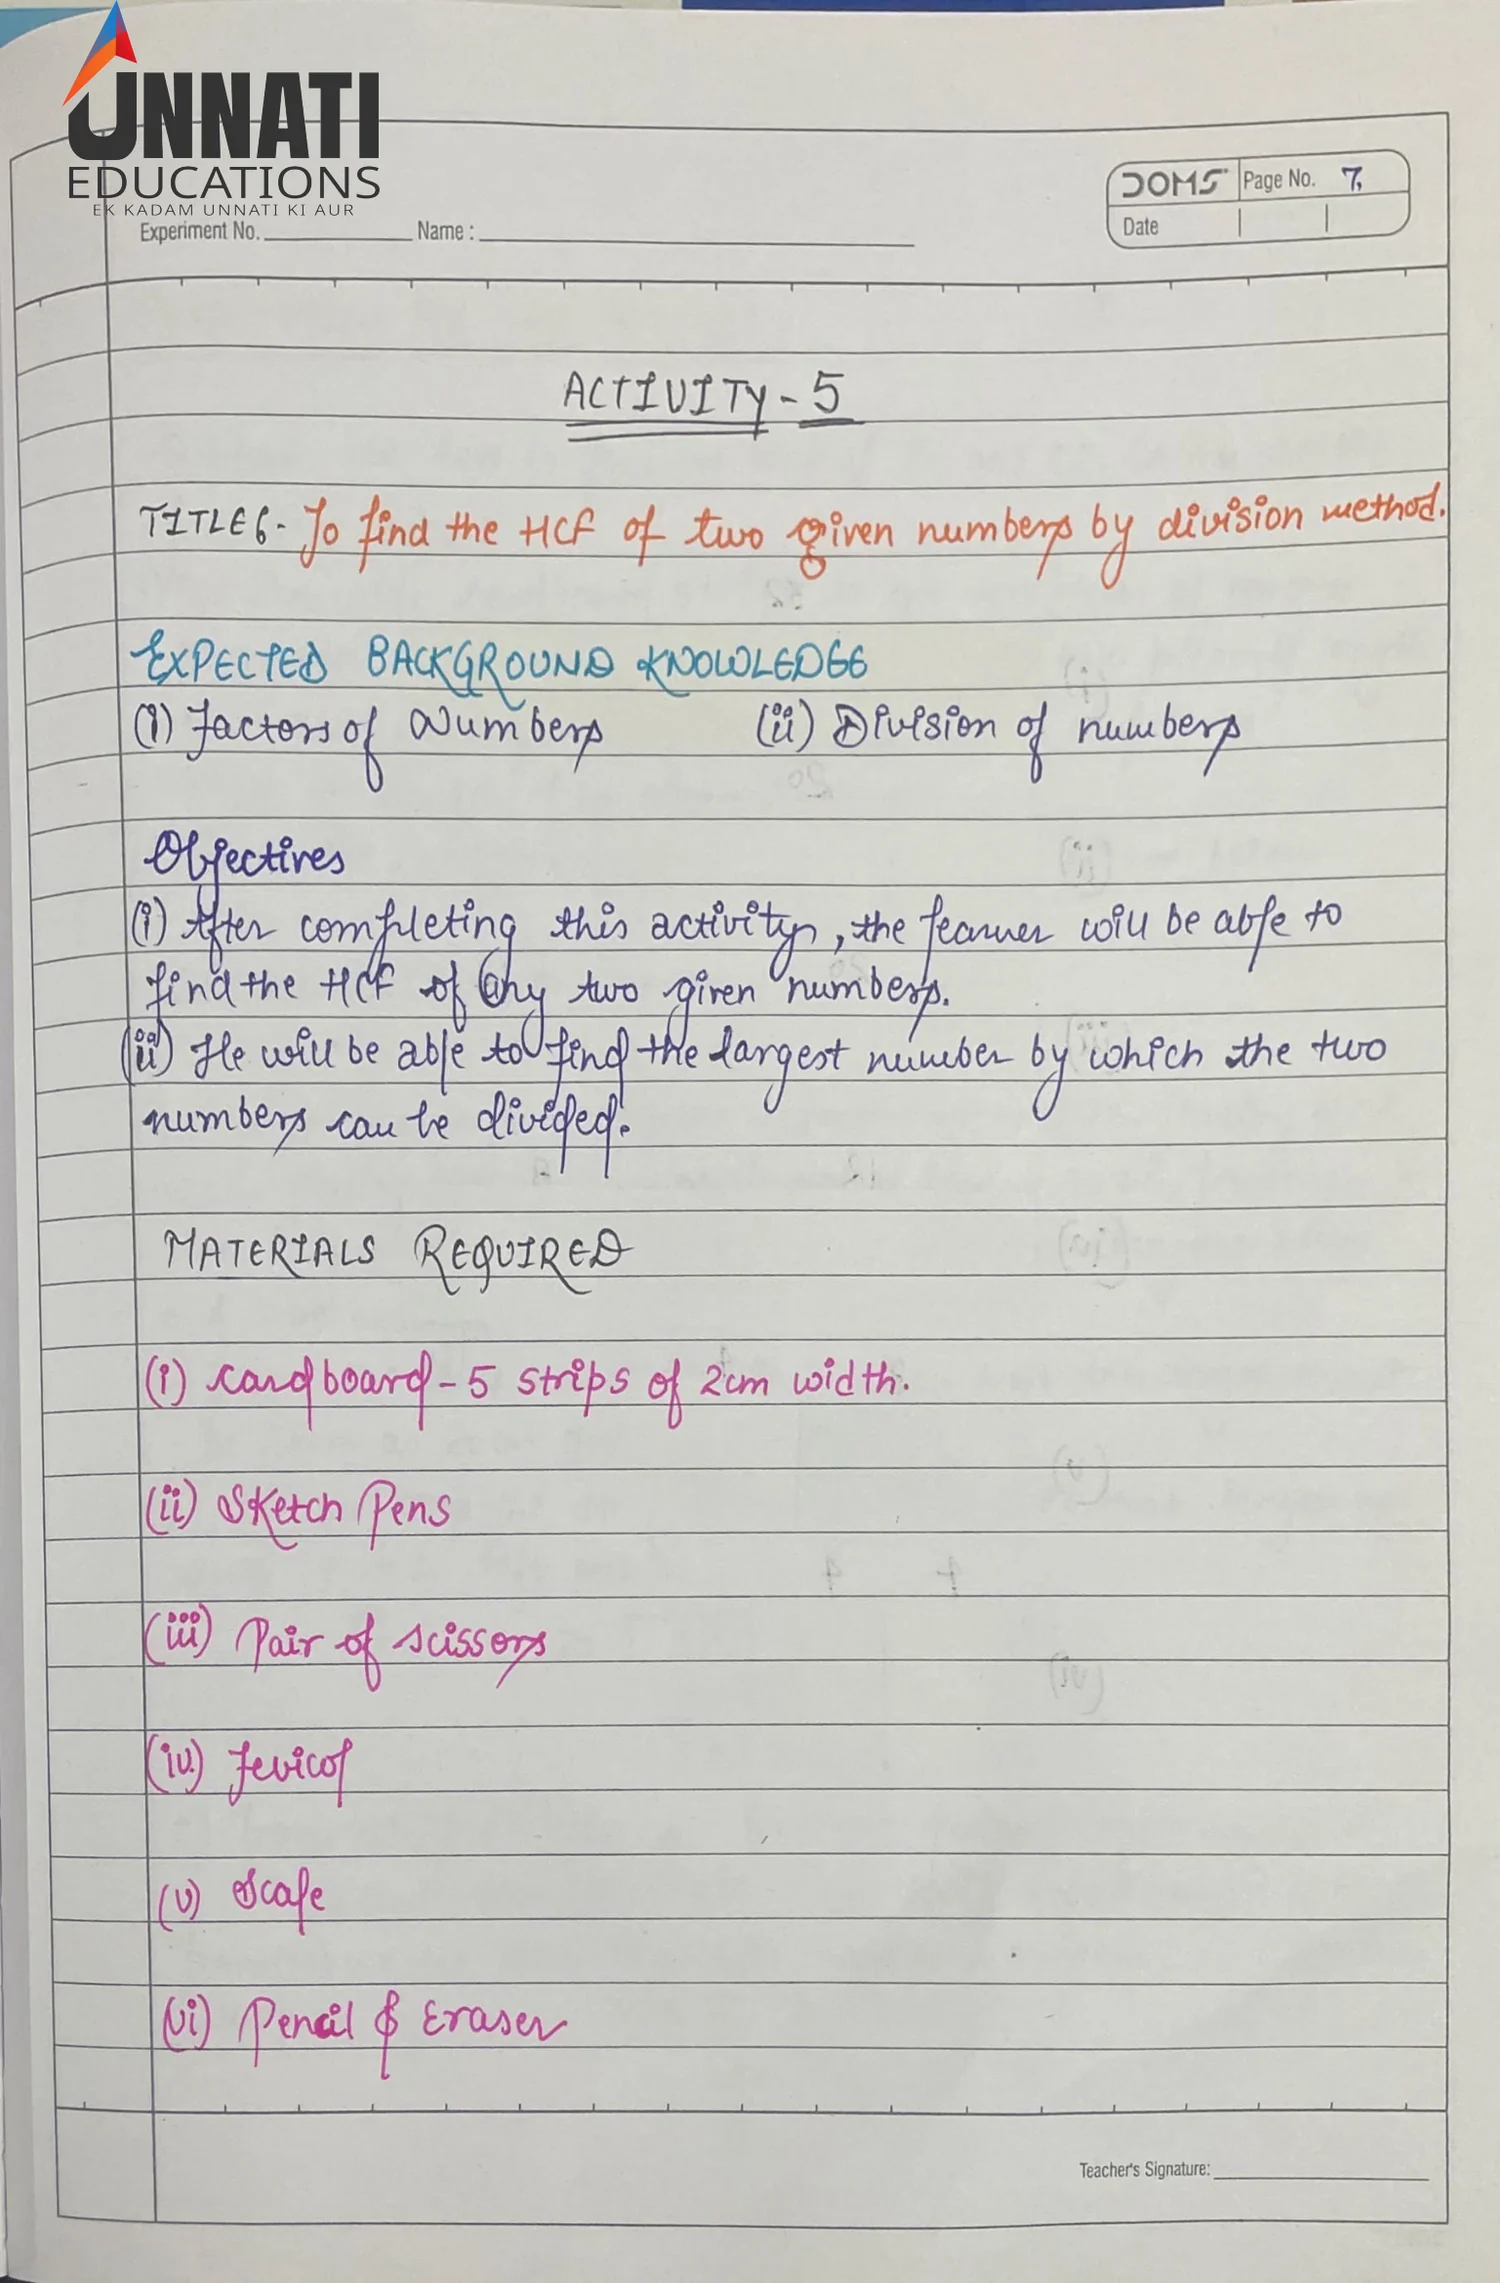 UNNATI
EDUCATIONS
EK KADAM UNNATI KI AUR
DOMS Page No. 7.
Experiment No. Name :
Date
ACTIVITY - 5
TITLE:- To find the HCF of two given numbers by division method.
EXPECTED BACKGROUND KNOWLEDGE
(i) Factors of Numbers (ii) Division of numbers
Objectives
(i) After completing this activity, the learner will be able to
find the HCF of any two given numbers.
(ii) He will be able to find the largest number by which the two
numbers can be divided.
MATERIALS REQUIRED
(i) Cardboard - 5 strips of 2cm width.
(ii) Sketch Pens
(iii) Pair of scissors
(iv) Fevicol
(v) Scale
(vi) Pencil & Eraser
Teacher's Signature: